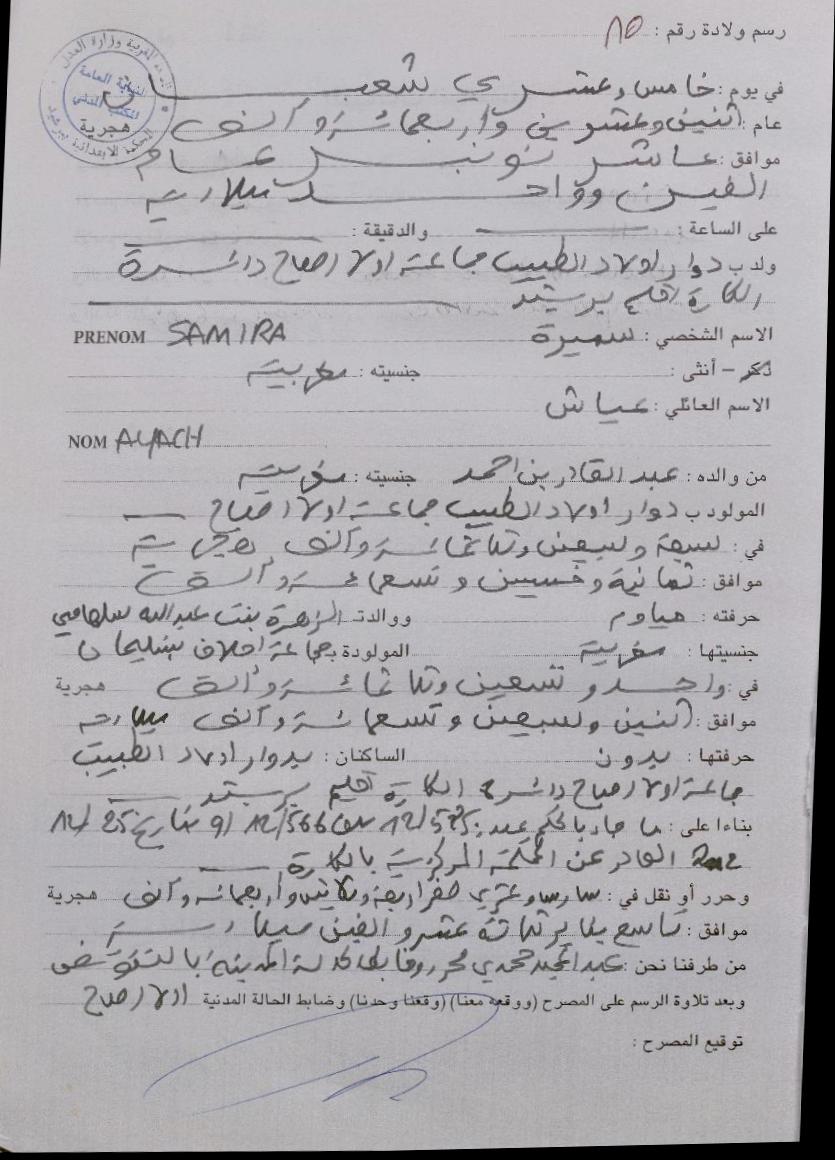 رسم ولادة رقم : 15
المملكة المغربية وزارة العدل
النيابة العامة
المحكمة الابتدائية ببرشيد
في يوم : خامس وعشري شعبان
عام : اثنين وعشرين وأربعمائة وألف هجرية
موافق : عاشر نونبر عام
ألفين وواحد ميلادية
على الساعة : والدقيقة :
ولد ب دوار اولاد الطبيب جماعة اولاد اصباح دائرة
الكارة اقليم برشيد
الاسم الشخصي : سميرة PRENOM SAMIRA
ذكر – أنثى : جنسيته : مغربية
الاسم العائلي : عياش
NOM AYACH
من والده : عبد القادر بن احمد جنسيته : مغربية
المولود ب دوار اولاد الطبيب جماعة اولاد اصباح
في : سبعة وسبعين وثلاثمائة وألف هجرية
موافق : ثمانية وخمسين وتسعمائة وألف
حرفته : مياوم ووالدته الزهرة بنت عبد الله
جنسيتها : مغربية المولودة بجماعة احلاف بنسليمان
في : واحد وتسعين وثلاثمائة وألف هجرية
موافق : اثنين وسبعين وتسعمائة وألف ميلادية
حرفتها : بدون الساكنان : بدوار اولاد الطبيب
جماعة اولاد اصباح دائرة الكارة اقليم برشيد
بناءا على : ما جاء بالحكم عدد : 12/ 12/566 بتاريخ 25/12/
الصادر عن المحكمة المركزية بالكارة
وحرر أو نقل في : سادس وعشري صفر اربعة وثلاثين وأربعمائة وألف هجرية
موافق : تاسع يناير ثلاثة عشر وألفين ميلادية
من طرفنا نحن : عبد المجيد حمدي ضابط الحالة المدنية بالتفويض
وبعد تلاوة الرسم على المصرح (ووقعه معنا) (وقعنا وحدنا) وضابط الحالة المدنية اولاد اصباح
توقيع المصرح :